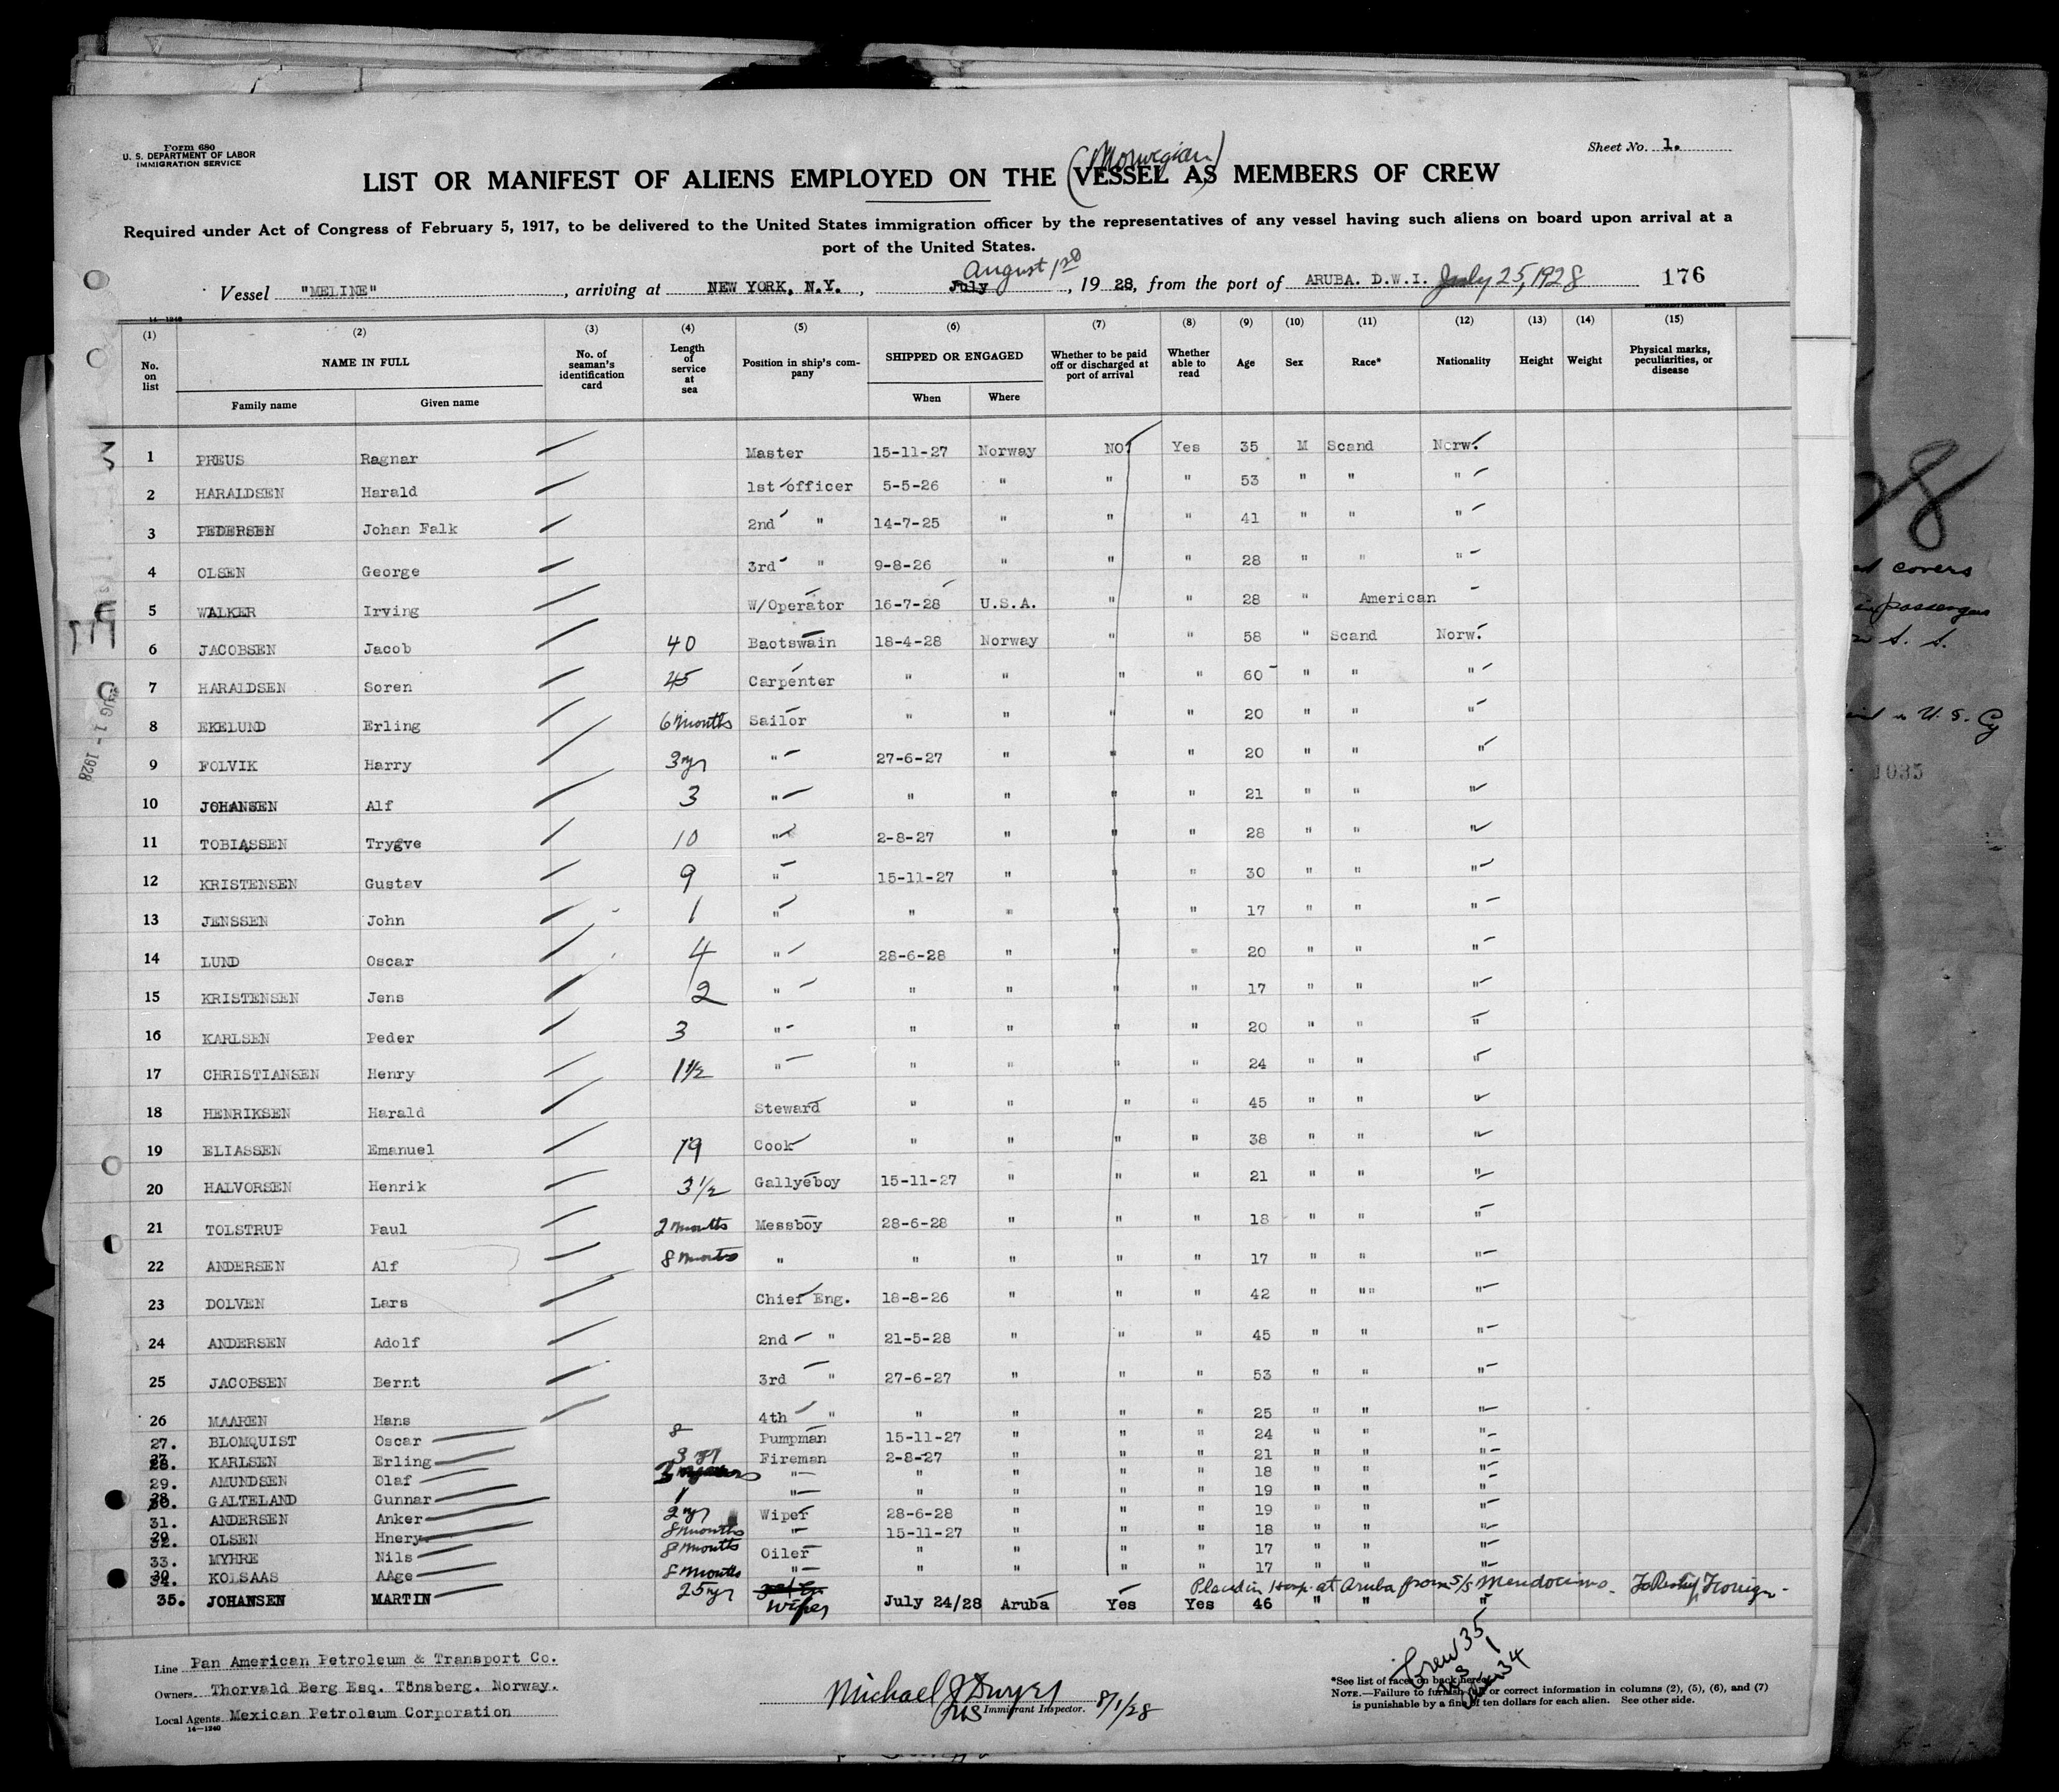 Form 680
U. S. DEPARTMENT OF LABOR
IMMIGRATION SERVICE
Sheet No. 1.
(Norwegian)
LIST OR MANIFEST OF ALIENS EMPLOYED ON THE VESSEL AS MEMBERS OF CREW
Required under Act of Congress of February 5, 1917, to be delivered to the United States immigration officer by the representatives of any vessel having such aliens on board upon arrival at a
port of the United States.
Vessel "MELINE", arriving at NEW YORK, N.Y., July August 1, 1928, from the port of ARUBA. D.W.I. July 25, 1928 176
14—1240
(1) (2) (3) (4) (5) (6) (7) (8) (9) (10) (11) (12) (13) (14) (15)
No. on list NAME IN FULL Family name Given name No. of seaman's identification card Length of service at sea Position in ship's company SHIPPED OR ENGAGED When Where Whether to be paid off or discharged at port of arrival Whether able to read Age Sex Race* Nationality Height Weight Physical marks, peculiarities, or disease
1 PREUS Ragnar Master 15-11-27 Norway NO Yes 35 M Scand Norw.
2 HARALDSEN Harald 1st officer 5-5-26 " " " 53 " " "
3 PEDERSEN Johan Falk 2nd " 14-7-25 " " " 41 " " "
4 OLSEN George 3rd " 9-8-26 " " " 28 " " "
5 WALKER Irving W/Operator 16-7-28 U.S.A. " " 28 " American
6 JACOBSEN Jacob 40 Baotswain 18-4-28 Norway " " 58 " Scand Norw.
7 HARALDSEN Soren 45 Carpenter " " " " 60 " " "
8 EKELUND Erling 6 months Sailor " " " " 20 " " "
9 FOLVIK Harry 3 yr " 27-6-27 " " " 20 " " "
10 JOHANSEN Alf 3 " " " " " 21 " " "
11 TOBIASSEN Trygve 10 " 2-8-27 " " " 28 " " "
12 KRISTENSEN Gustav 9 " 15-11-27 " " " 30 " " "
13 JENSSEN John 1 " " " " " 17 " " "
14 LUND Oscar 4 " 28-6-28 " " " 20 " " "
15 KRISTENSEN Jens 2 " " " " " 17 " " "
16 KARLSEN Peder 3 " " " " " 20 " " "
17 CHRISTIANSEN Henry 1 1/2 " " " " " 24 " " "
18 HENRIKSEN Harald Steward " " " " 45 " " "
19 ELIASSEN Emanuel 19 Cook " " " " 38 " " "
20 HALVORSEN Henrik 3 1/2 Gallyeboy 15-11-27 " " " 21 " " "
21 TOLSTRUP Paul 2 months Messboy 28-6-28 " " " 18 " " "
22 ANDERSEN Alf 8 months " " " " " 17 " " "
23 DOLVEN Lars Chief Eng. 18-8-26 " " " 42 " "" "
24 ANDERSEN Adolf 2nd " 21-5-28 " " " 45 " " "
25 JACOBSEN Bernt 3rd " 27-6-27 " " " 53 " " "
26 MAAREN Hans 4th " " " " " 25 " " "
27. BLOMQUIST Oscar 8 Pumpman 15-11-27 " " " 24 " " "
28. KARLSEN Erling 3 yr Fireman 2-8-27 " " " 21 " " "
29. AMUNDSEN Olaf " " " " " 18 " " "
30. GALTELAND Gunnar 1 " " " " " 19 " " "
31. ANDERSEN Anker 2 yr Wiper 28-6-28 " " " 19 " " "
32. OLSEN Hnery 8 months " 15-11-27 " " " 18 " " "
33. MYHRE Nils 8 months Oiler " " " " 17 " " "
34. KOLSAAS AAge 8 months " " " " " 17 " " "
Placed in Hosp. at Aruba from S/S Mendocino. To Reship Foreign
35. JOHANSEN MARTIN 25 yr Wiper July 24/28 Aruba Yes Yes 46 " " "
AUG 1 - 1928
Line Pan American Petroleum & Transport Co.
Owners Thorvald Berg Esq. Tönsberg. Norway.
Local Agents Mexican Petroleum Corporation
14—1240
Michael J Dwyer
Immigrant Inspector. 8/1/28
Crew 35
1
34
*See list of races on back hereof.
NOTE.—Failure to furnish full or correct information in columns (2), (5), (6), and (7)
is punishable by a fine of ten dollars for each alien. See other side.
covers
passengers
S. S.
U. S. Cy
1035